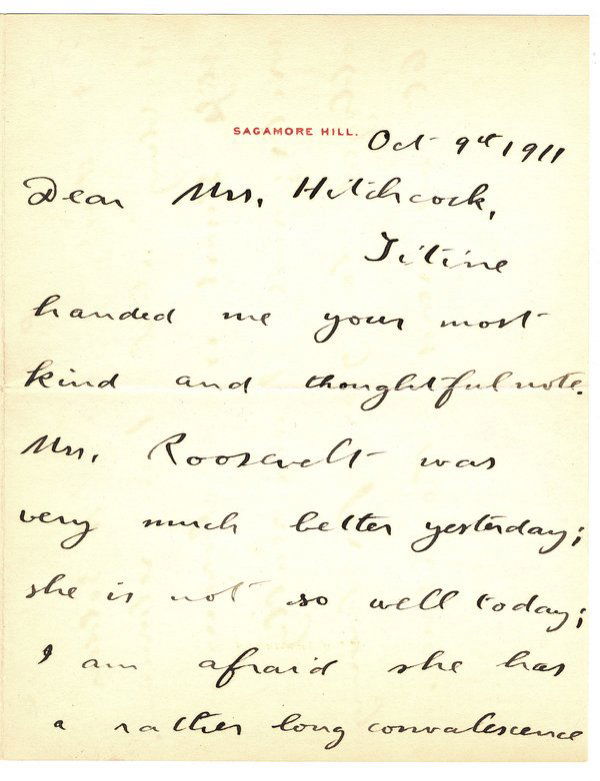 SAGAMORE HILL.
Oct 9th 1911
Dear Mrs. Hitchcock,
Titine
handed me your most
kind and thoughtful note.
Mrs. Roosevelt was
very much better yesterday;
she is not so well today;
I am afraid she has
a rather long convalescence